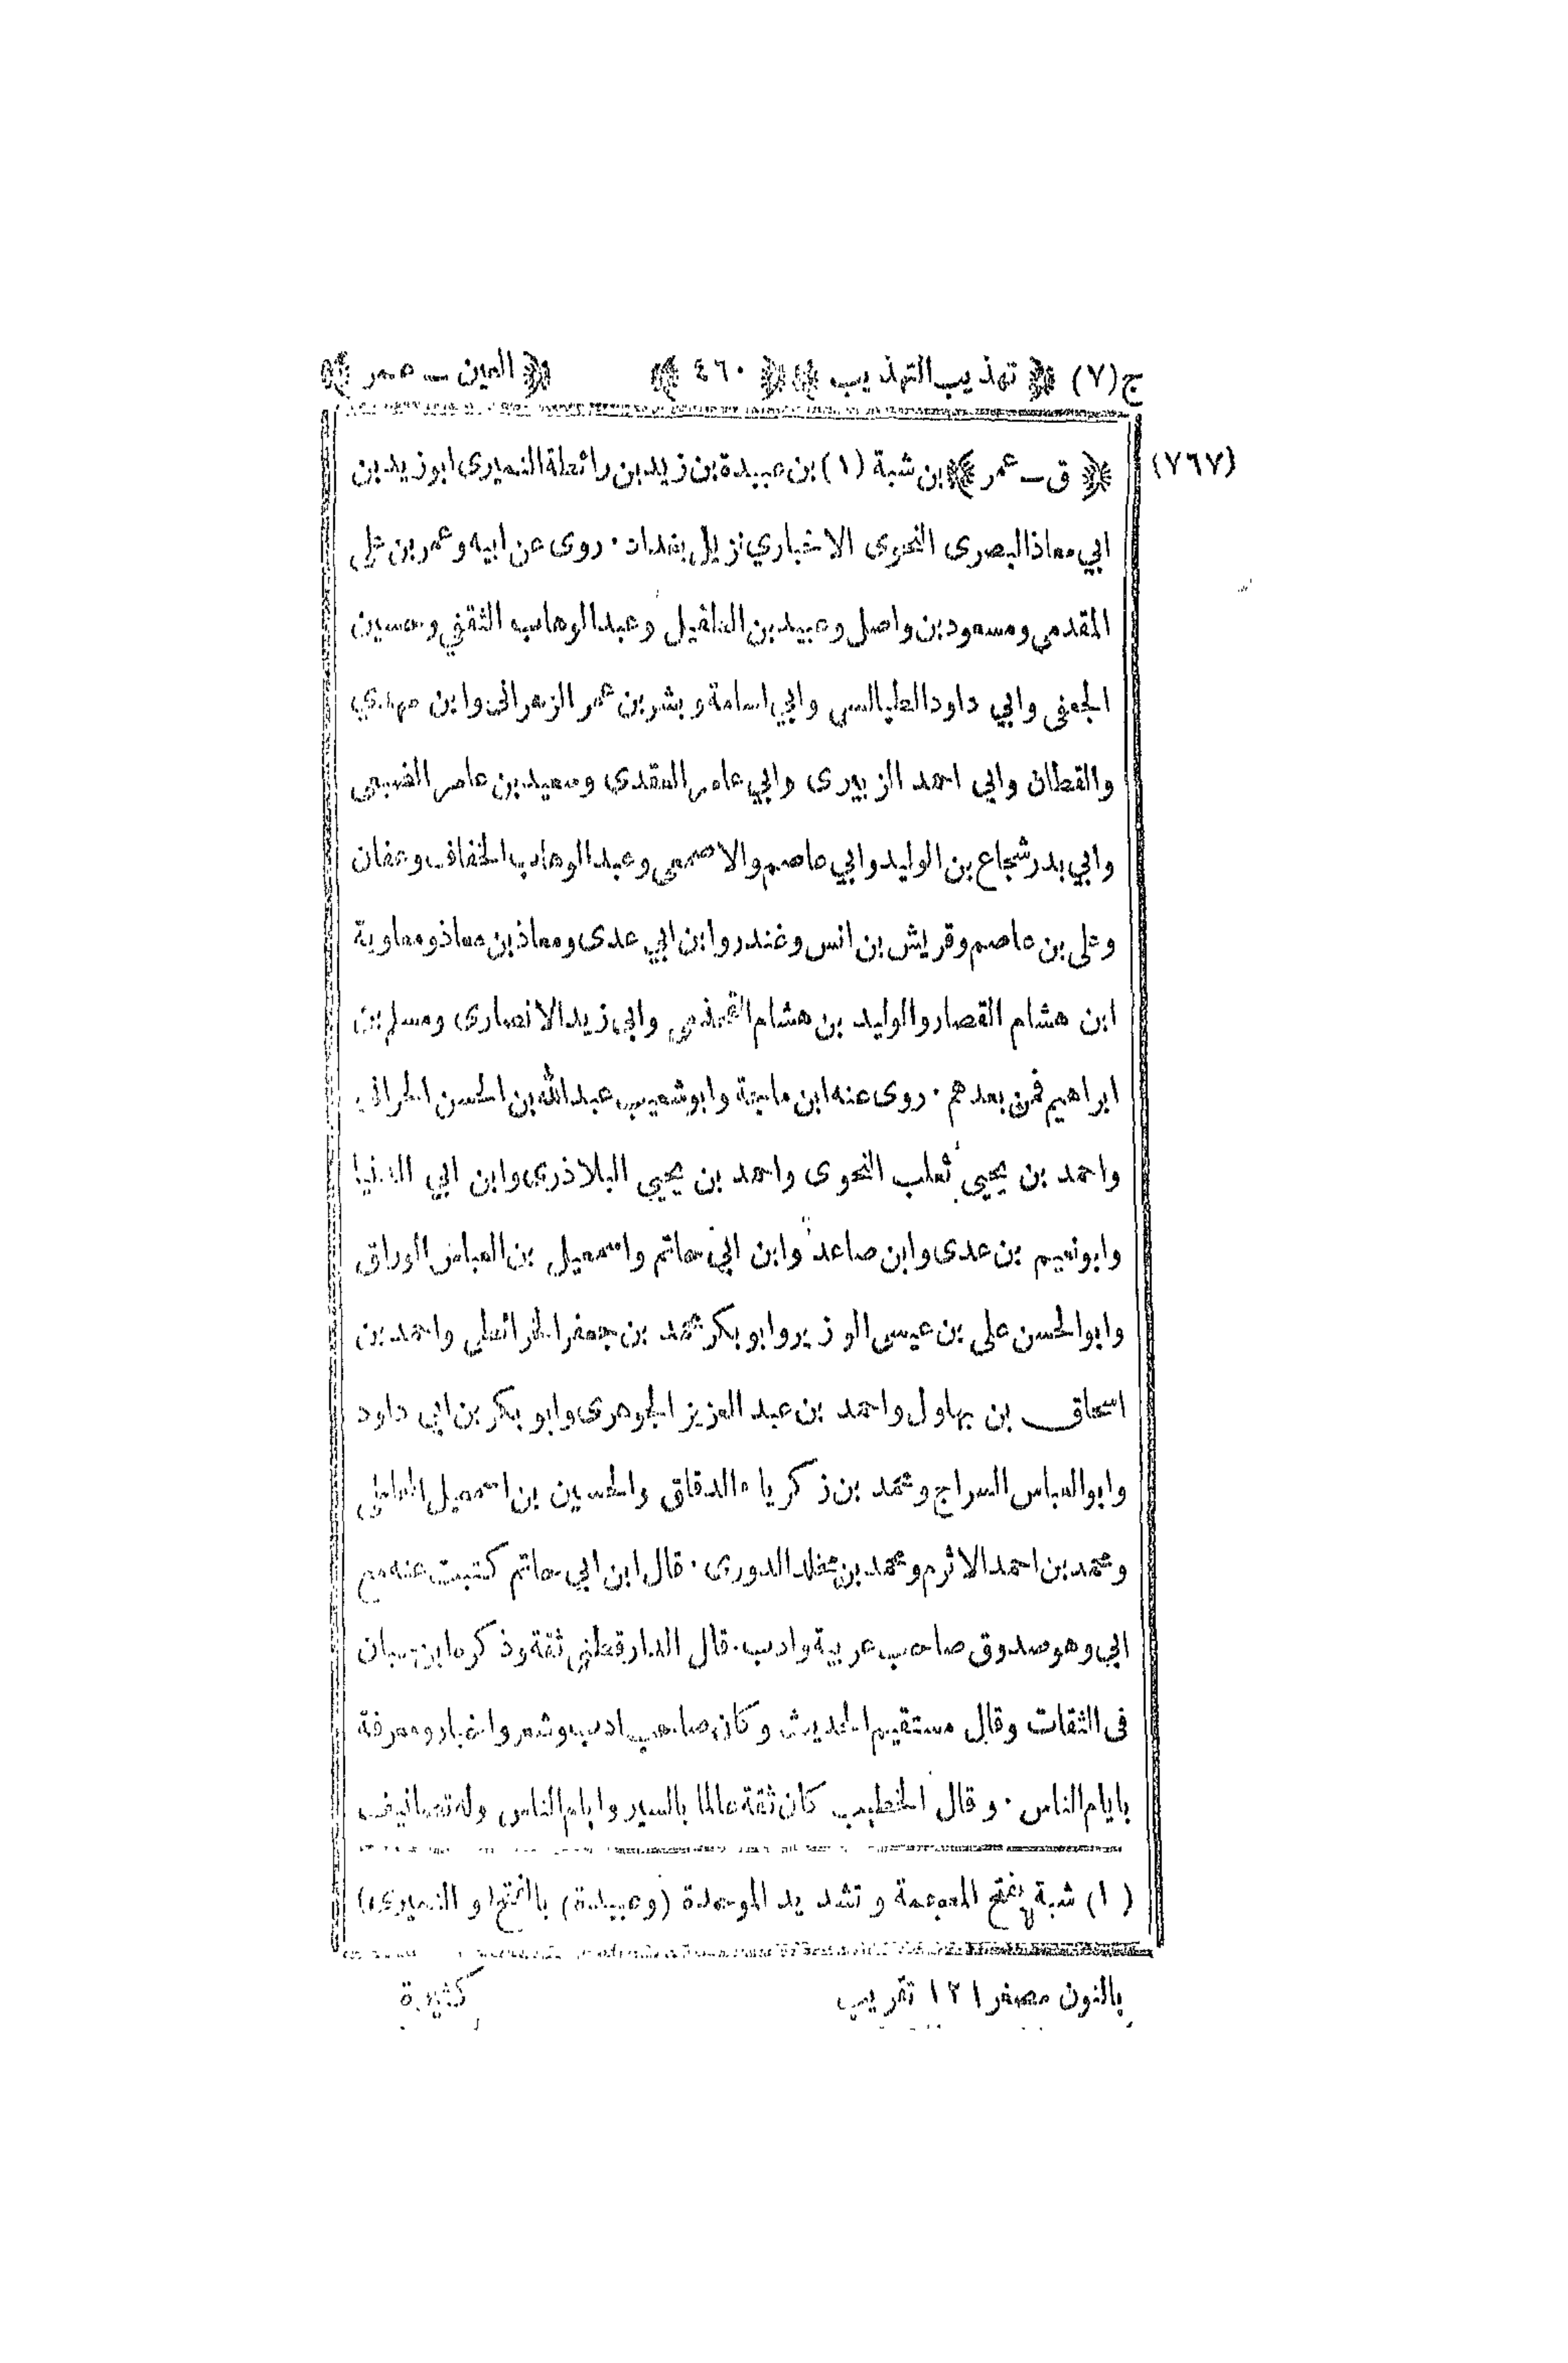 ج(٧) ﴿ تهذيب التهذيب ﴾ ﴿ ٤٦٠ ﴾ ﴿ العين ـ عمر ﴾
(٧٦٧) ﴿ ق ـ عمر ﴾ بن شبة (١) بن عبيدة بن زيد بن رائطة النميرى ابو زيد بن
ابي معاذ البصرى النحوى الاخباري نزيل بغداد · روى عن ابيه وعمر بن علي
المقدمي ومسعود بن واصل وعبيد بن الطفيل وعبد الوهاب الثقفي وحسين
الجعفى وابي داود الطيالسي وابي اسامة وبشر بن عمر الزهرانى وابن مهدي
والقطان وابي احمد الزبيرى وابي عامر العقدى وسعيد بن عامر الضبعى
وابي بدر شجاع بن الوليد وابي عاصم والاصمعى وعبد الوهاب الخفاف وعفان
وعلى بن عاصم وقريش بن انس وغندر وابن ابي عدى ومعاذ بن معاذ ومعاوية
ابن هشام القصار والوليد بن هشام القحذمي وابى زيد الانصارى ومسلم بن
ابراهيم فمن بعدهم · روى عنه ابن ماجة وابو شعيب عبد الله بن الحسن الحراني
واحمد بن يحيى ثعلب النحوى واحمد بن يحيى البلاذرى وابن ابي الدنيا
وابو نعيم بن عدى وابن صاعد وابن ابي حاتم واسمعيل بن العباس الوراق
وابو الحسن على بن عيسى الوزير وابو بكر محمد بن جعفر الخرائطي واحمد بن
اسحاق بن بهلول واحمد بن عبد العزيز الجوهرى وابو بكر بن ابي داود
وابو العباس السراج ومحمد بن زكرياء الدقاق والحسين بن اسمعيل المحاملي
ومحمد بن احمد الاثرم ومحمد بن مخلد الدورى · قال ابن ابي حاتم كتبت عنه مع
ابي وهو صدوق صاحب عربية وادب · قال الدارقطني ثقة وذكره ابن حبان
فى الثقات وقال مستقيم الحديث وكان صاحب ادب وشعر واخبار ومعرفة
بايام الناس · وقال الخطيب كان ثقة عالما بالسير وايام الناس وله تصانيف
(١) شبة بفتح المعجمة وتشديد الموحدة (وعبيدة) بالفتح (و النميرى)
بالنون مصغرا ١٢ تقريب كثيرة